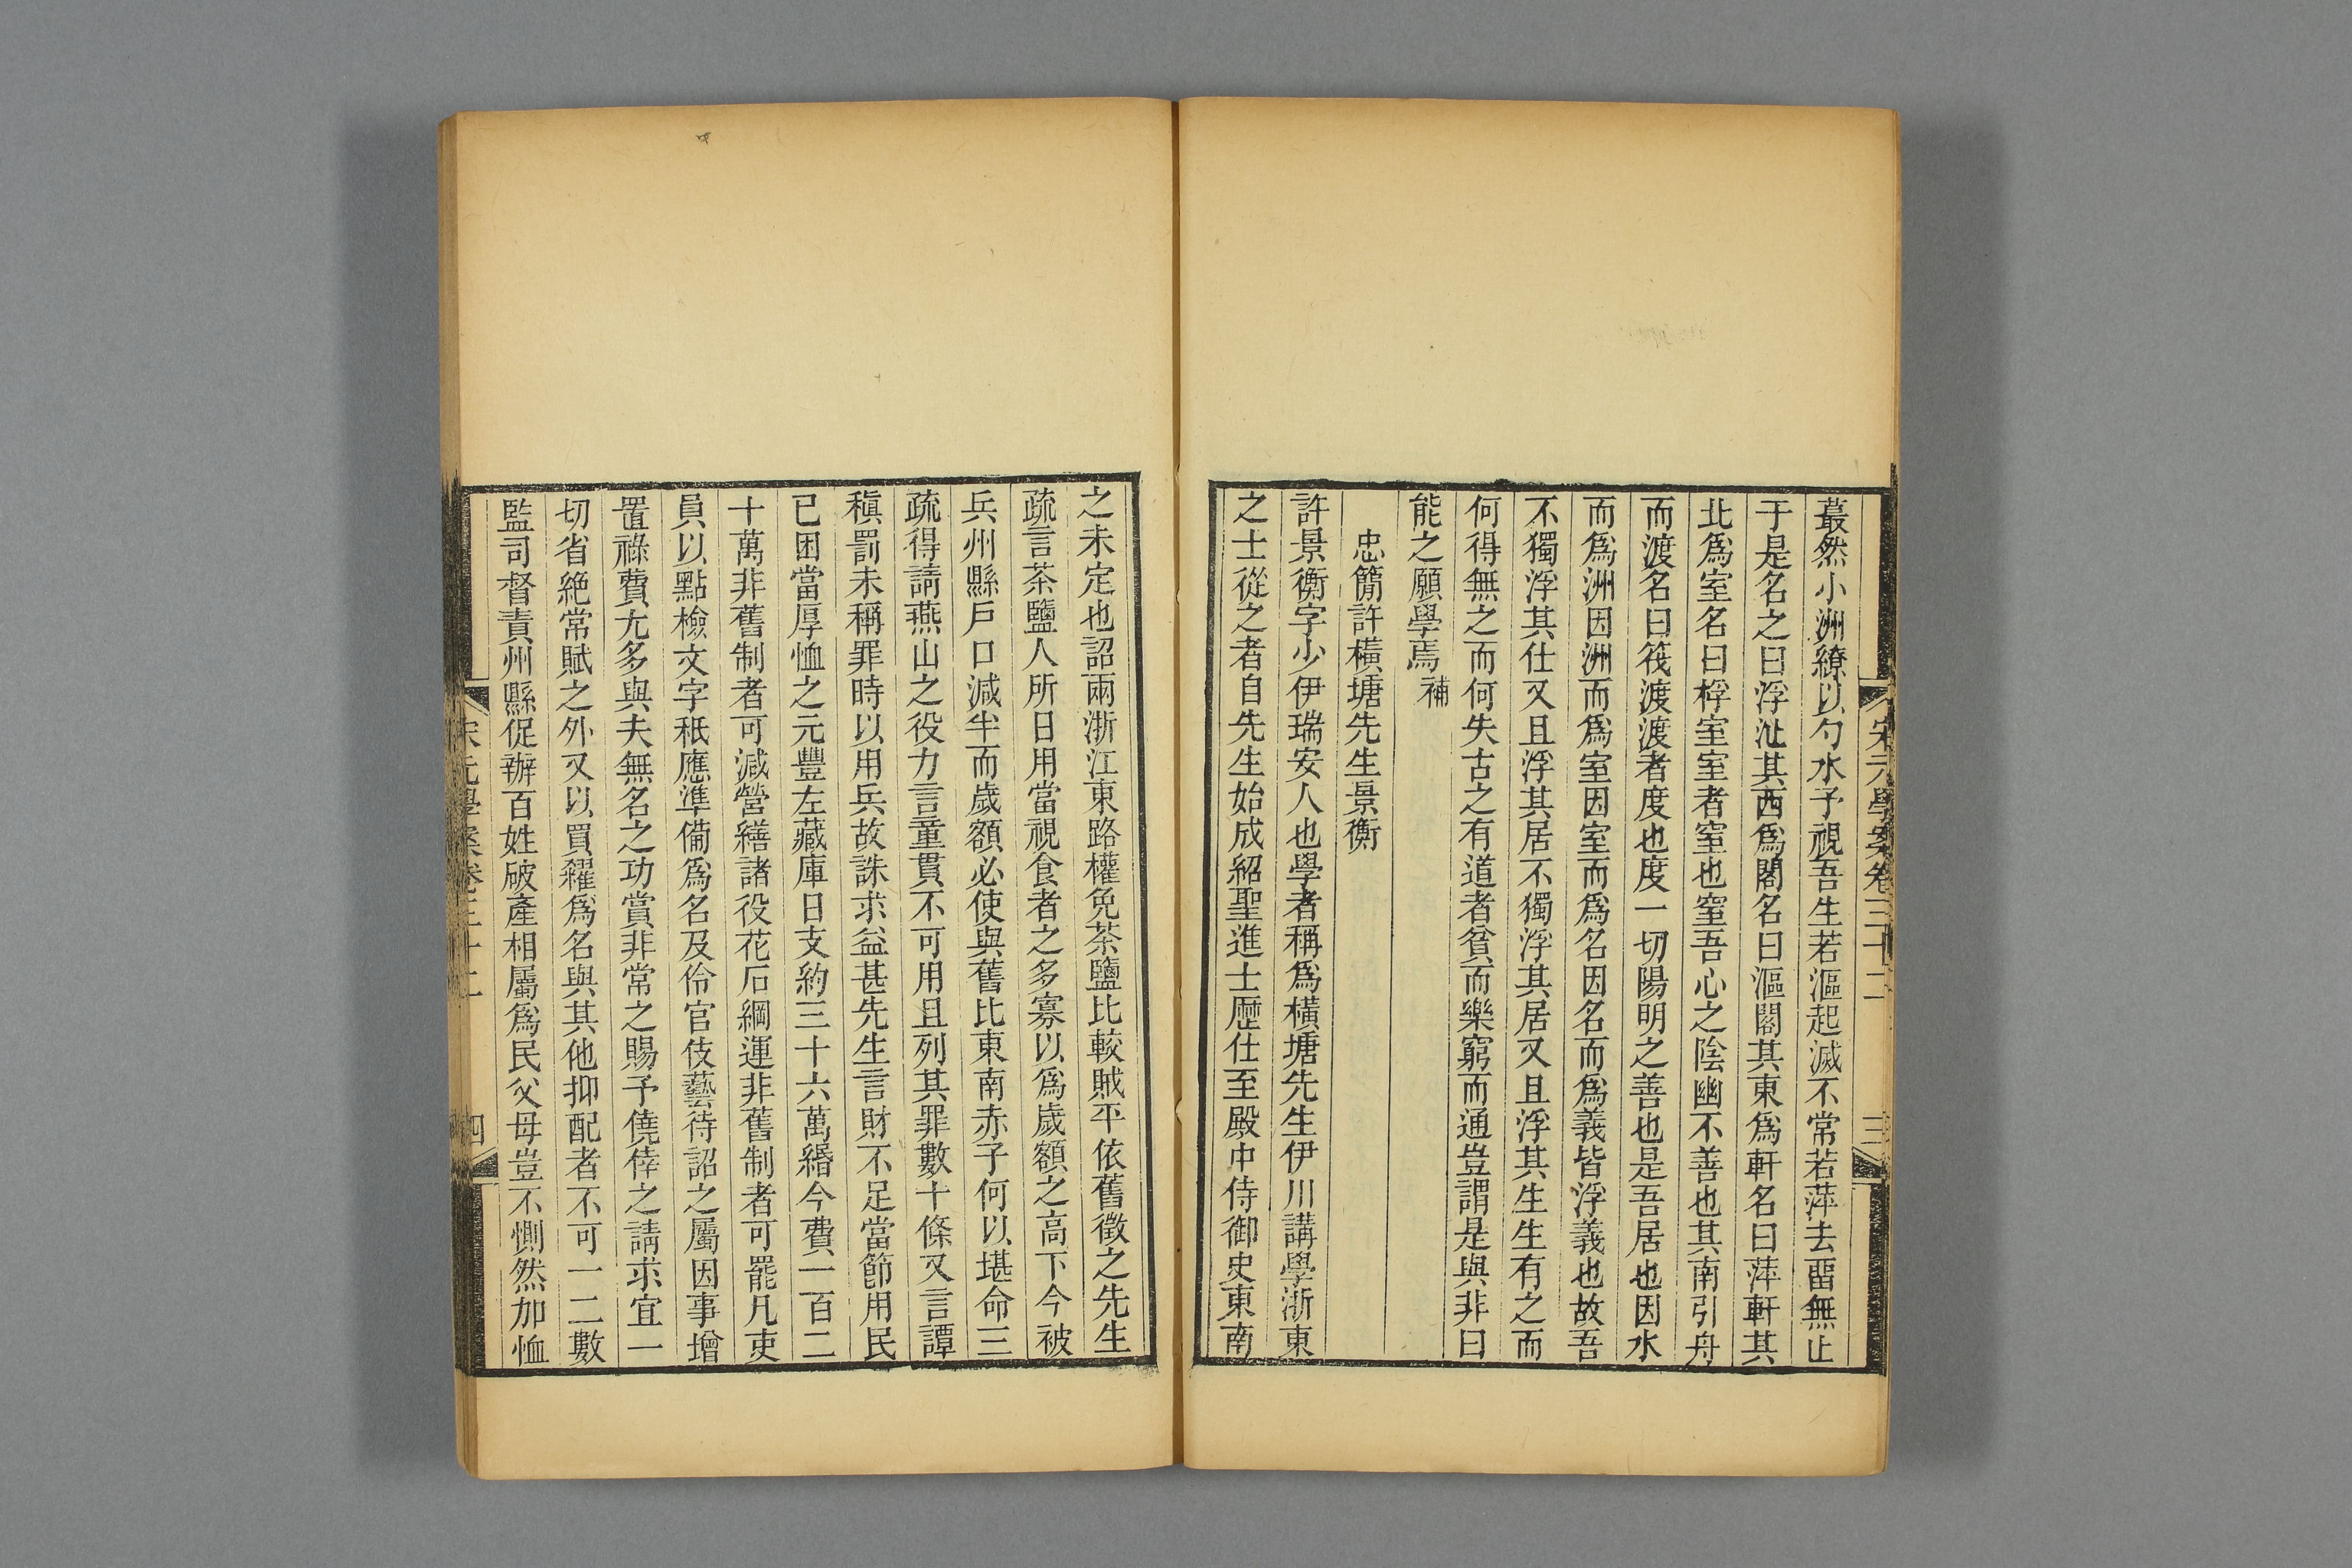 宋元學案卷三十二
三
蕞然小洲繚以勺水予視吾生若漚起滅不常若萍去畱無止
于是名之曰浮沚其西爲閣名曰漚閣其東爲軒名曰萍軒其
北爲室名曰桴室室者窒也窒吾心之陰幽不善也其南引舟
而渡名曰筏渡渡者度也度一切陽明之善也是吾居也因水
而爲洲因洲而爲室因室而爲名因名而爲義皆浮義也故吾
不獨浮其仕又且浮其居不獨浮其居又且浮其生生有之而
何得無之而何失古之有道者貧而樂窮而通豈謂是與非曰
能之願學焉補
忠簡許橫塘先生景衡
許景衡字少伊瑞安人也學者稱爲橫塘先生伊川講學浙東
之士從之者自先生始成紹聖進士歷仕至殿中侍御史東南
之未定也詔兩浙江東路權免茶鹽比較賊平依舊徵之先生
疏言茶鹽人所日用當視食者之多寡以爲歲額之高下今被
兵州縣戶口減半而歲額必使與舊比東南赤子何以堪命三
疏得請燕山之役力言童貫不可用且列其罪數十條又言譚
稹罰未稱罪時以用兵故誅求益甚先生言財不足當節用民
已困當厚恤之元豐左藏庫日支約三十六萬緡今費一百二
十萬非舊制者可減營繕諸役花石綱運非舊制者可罷凡吏
員以點檢文字秖應準備爲名及伶官伎藝待詔之屬因事增
置祿費尤多與夫無名之功賞非常之賜予僥倖之請求宜一
切省絕常賦之外又以買糴爲名與其他抑配者不可一二數
監司督責州縣促辦百姓破產相屬爲民父母豈不惻然加恤
宋元學案卷三十二
四